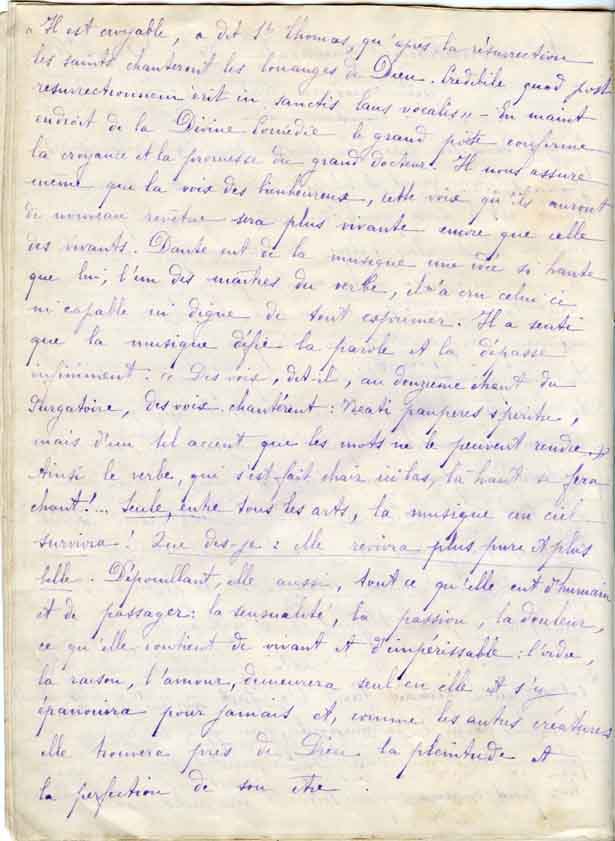 "Il est croyable, a dit St Thomas, qu'après la résurrection
les saints chanteront les louanges de Dieu. Credibile quod post
resurrectionnem erit in sanctis laus vocalis" – En maint
endroit de la Divine Comédie le grand poète confirme
la croyance et la promesse du grand docteur. Il nous assure
même que la voix des bienheureux, cette voix qu'ils auront
de nouveau revêtue sera plus vivante encore que celle
des vivants. Dante eut de la musique une idée si haute
que lui, l'un des maîtres du verbe, il n'a cru celui ci
ni capable ni digne de tout exprimer. Il a senti
que la musique défie la parole et la dépasse
infiniment. "Des voix, dit-il, au douzième chant du
Purgatoire, des voix chantèrent : Beati pauperes spiritu,
mais d'un tel accent que les mots ne le peuvent rendre."
Ainsi le verbe, qui s'est fait chair ici bas, là haut se fera
chant !... Seule, entre tous les arts, la musique au ciel
survivra ! Que dis-je : elle revivra plus pure et plus
belle. Dépouillant, elle aussi, tout ce qu'elle eut d'humain
et de passager : la sensualité, la passion, la douleur,
ce qu'elle contient de vivant et d'impérissable : l'ordre,
la raison, l'amour, demeurera seul en elle et s'y
épanouira pour jamais et, comme les autres créatures
elle trouvera près de Dieu la plénitude et
la perfection de son être.